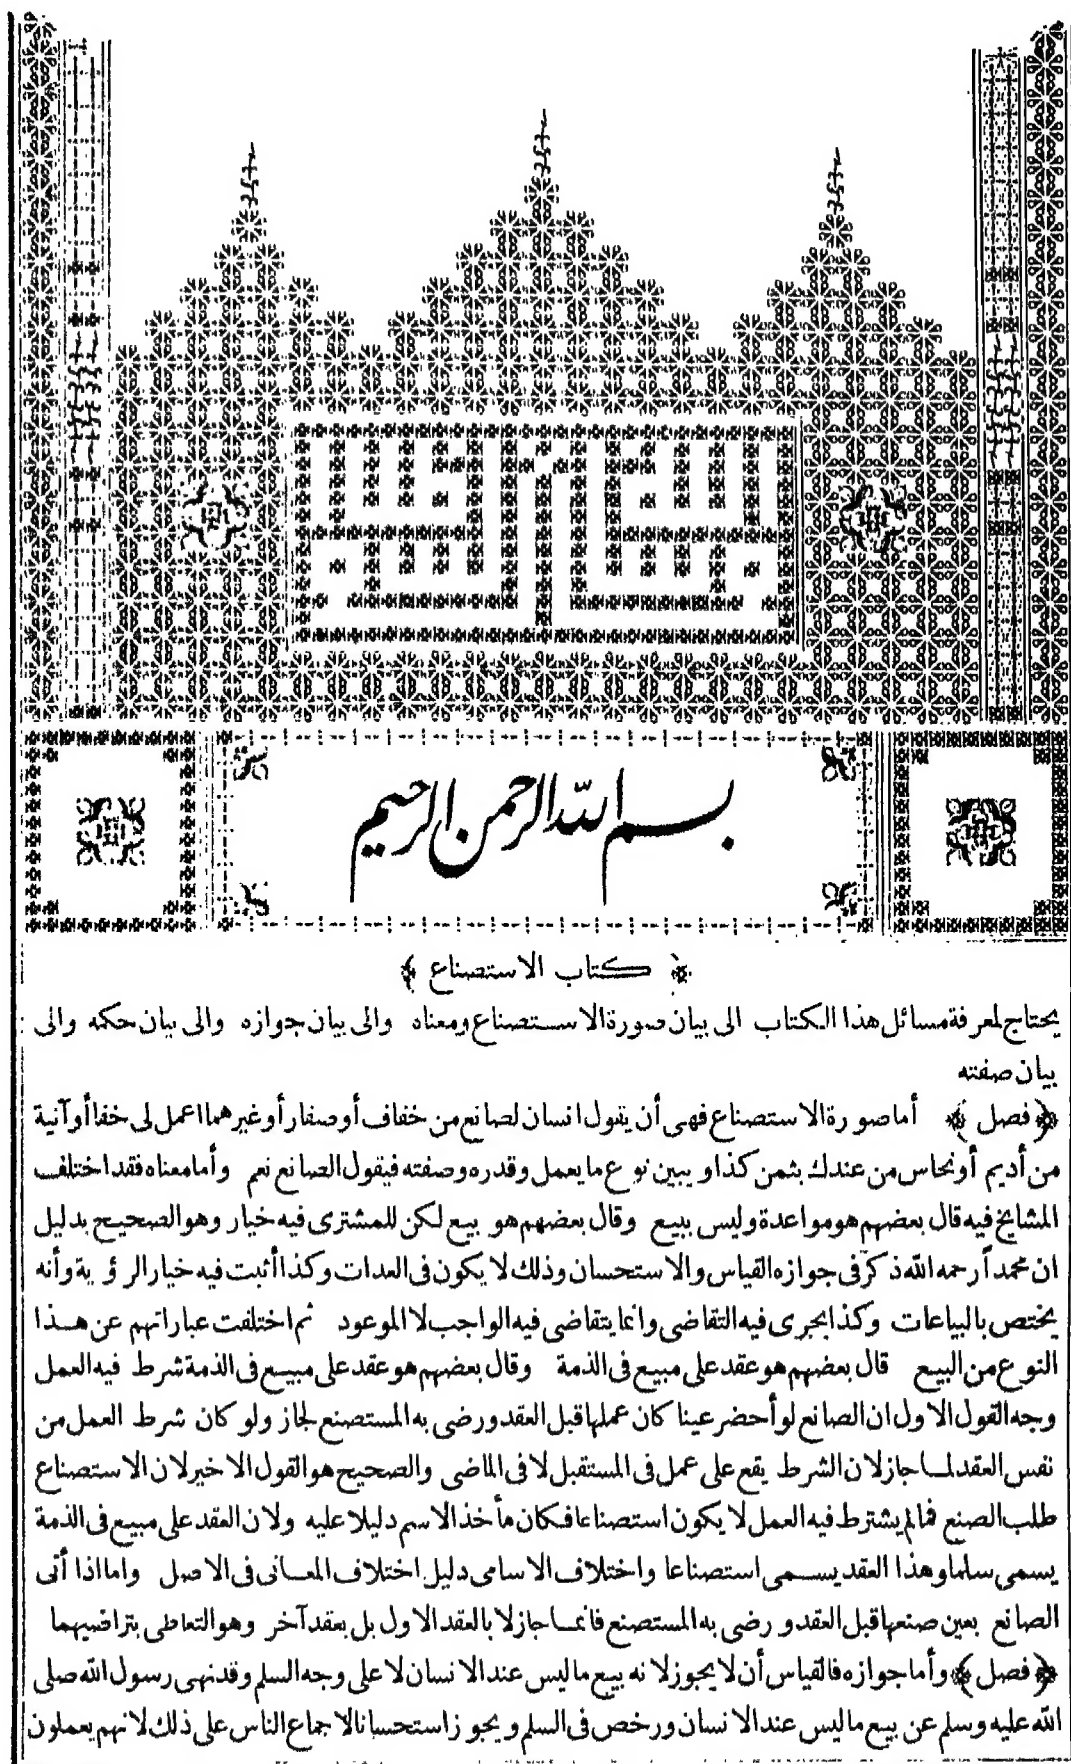 بسم الله الرحمن الرحيم
﴿ كتاب الاستصناع ﴾
يحتاج لمعرفة مسائل هذا الكتاب الى بيان صورة الاستصناع ومعناه والى بيان جوازه والى بيان حكمه والى
بيان صفته
﴿ فصل ﴾ أما صورة الاستصناع فهى أن يقول انسان لصانع من خفاف أو صفار أو غيرهما اعمل لى خفا أو آنية
من أديم أو نحاس من عندك بثمن كذا ويبين نوع ما يعمل وقدره وصفته فيقول الصانع نعم وأما معناه فقد اختلف
المشايخ فيه قال بعضهم هو مواعدة وليس ببيع وقال بعضهم هو بيع لكن للمشترى فيه خيار وهو الصحيح بدليل
ان محمداً رحمه الله ذكر فى جوازه القياس والاستحسان وذلك لا يكون فى العدات وكذا أثبت فيه خيار الرؤية وأنه
يختص بالبياعات وكذا يجرى فيه التقاضى وانما يتقاضى فيه الواجب لا الموعود ثم اختلفت عباراتهم عن هذا
النوع من البيع قال بعضهم هو عقد على مبيع فى الذمة وقال بعضهم هو عقد على مبيع فى الذمة شرط فيه العمل
وجه القول الاول ان الصانع لو أحضر عينا كان عملها قبل العقد ورضى به المستصنع لجاز ولو كان شرط العمل من
نفس العقد لما جاز لان الشرط يقع على عمل فى المستقبل لا فى الماضى والصحيح هو القول الاخير لان الاستصناع
طلب الصنع فما لم يشترط فيه العمل لا يكون استصناعا فكان مأخذ الاسم دليلا عليه ولان العقد على مبيع فى الذمة
يسمى سلما وهذا العقد يسمى استصناعا واختلاف الاسامى دليل اختلاف المعانى فى الاصل واما اذا أتى
الصانع بعين صنعها قبل العقد ورضى به المستصنع فانما جاز لا بالعقد الاول بل بعقد آخر وهو التعاطى بتراضيهما
﴿ فصل ﴾ وأما جوازه فالقياس أن لا يجوز لانه بيع ما ليس عند الانسان لا على وجه السلم وقد نهى رسول الله صلى
الله عليه وسلم عن بيع ما ليس عند الانسان ورخص فى السلم ويجوز استحسانا لاجماع الناس على ذلك لانهم يعملون